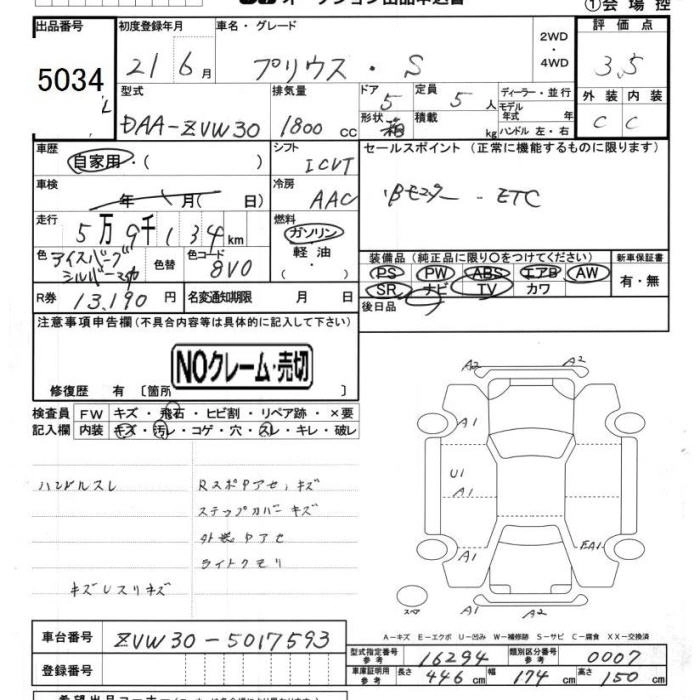 オークション出品申込書
①会場控
出品番号 初度登録年月 車名・グレード 2WD・4WD 評価点
5034 21 6月 プリウス・S 3.5
型式 排気量 ドア 5 定員 5人 ディーラー・並行 外装 内装
DAA-ZVW30 1800cc 形状 箱 積載 kg モデル年式 年 C C
ハンドル 左・右
車歴 自家用・( ) シフト ICVT セールスポイント (正常に機能するものに限ります)
車検 年 月(日) 冷房 AAC ETC
走行 5万9千134km 燃料 ガソリン 軽油・( )
色 アイスバーグシルバーマイカ 色替 色コード 8V0
装備品 (純正品に限り○をつけてください) 新車保証書
PS PW ABS エアB AW 有・無
SR ナビ TV カワ
R券 13,190円 名変通知期限 月 日 後日品
注意事項申告欄(不具合内容等は具体的に記入して下さい)
NOクレーム・売切
修復歴 有 〔箇所 〕
検査員 FW キズ・飛石・ヒビ割・リペア跡・×要
記入欄 内装 キズ・汚レ・コゲ・穴・スレ・キレ・破レ
ハンドルスレ Rスポタアセ,キズ
ステップカバーキズ
外装アセ
ライトクモリ
A2 A2
A1 A1
U1
A1
A1 EA1
A1 A2
スペア
A−キズ E−エクボ U−凹み W−補修跡 S−サビ C−腐食 XX−交換済
車台番号 ZVW30-5017593
登録番号
型式指定番号 参考 16294 類別区分番号 参考 0007
車庫証明用 参考 長さ 446cm 幅 174cm 高さ 150cm